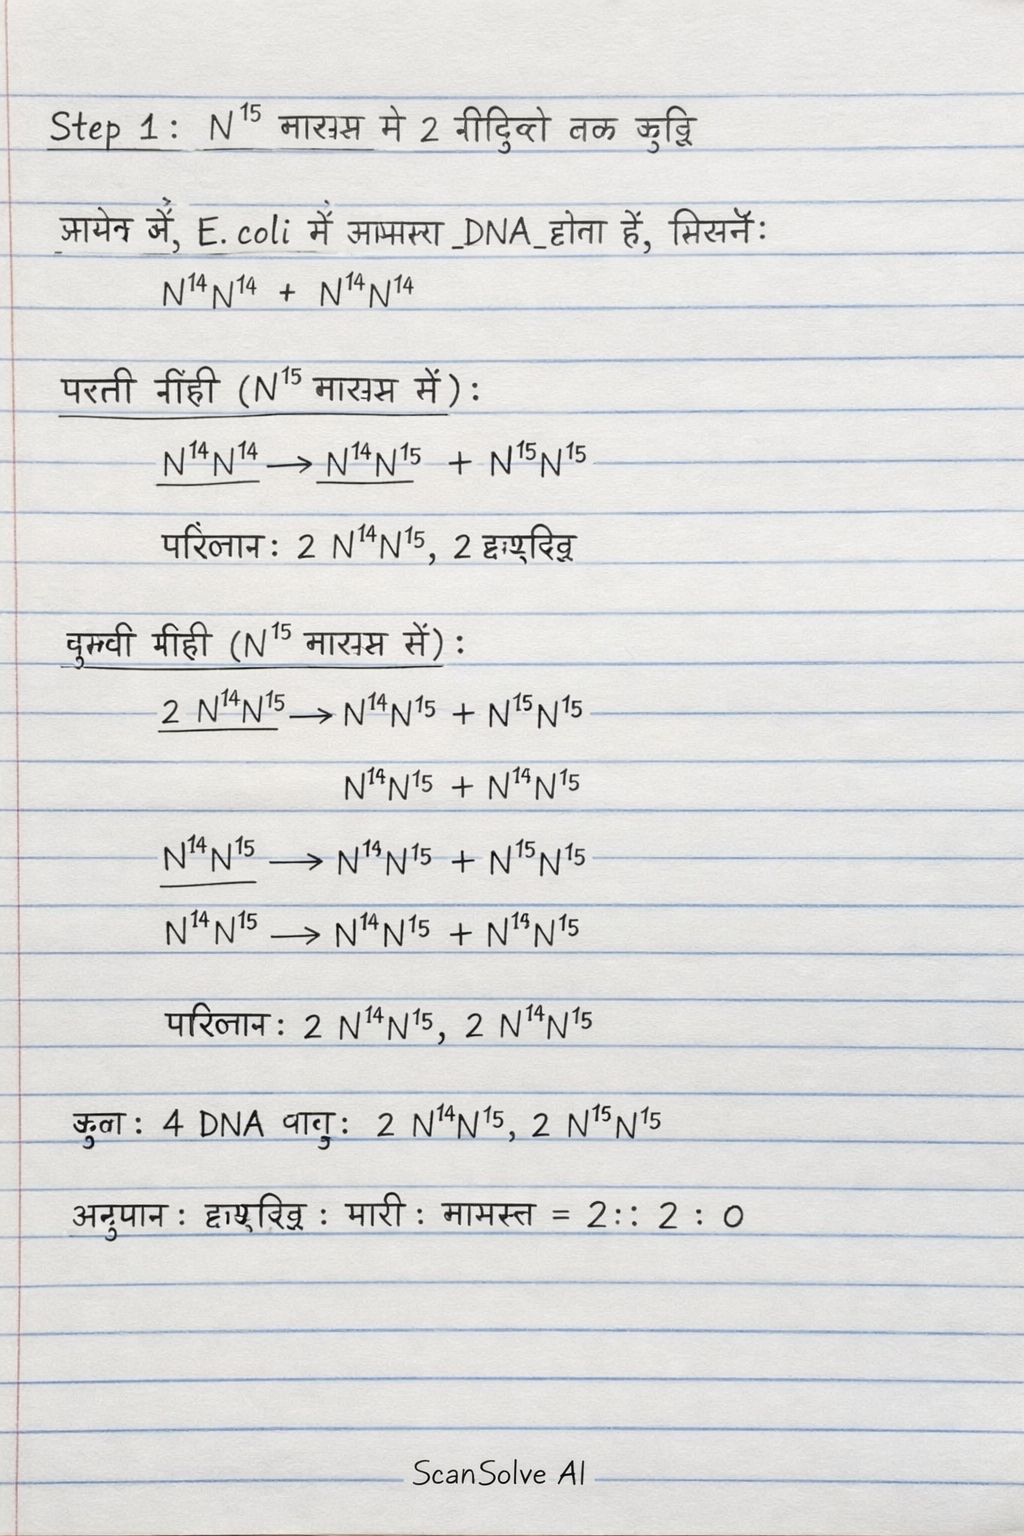 Step 1: N¹⁵ मारसस मे 2 नीदिुव्तो तक कुव्वि
में, E. coli में DNA होता हैं,
N¹⁴N¹⁴ + N¹⁴N¹⁴
परती नींही (N¹⁵ में):
N¹⁴N¹⁴ → N¹⁴N¹⁵ + N¹⁵N¹⁵
परिंलान: 2 N¹⁴N¹⁵, 2
मीही (N¹⁵ सें):
2 N¹⁴N¹⁵ → N¹⁴N¹⁵ + N¹⁵N¹⁵
N¹⁴N¹⁵ + N¹⁴N¹⁵
N¹⁴N¹⁵ → N¹⁴N¹⁵ + N¹⁵N¹⁵
N¹⁴N¹⁵ → N¹⁴N¹⁵ + N¹⁴N¹⁵
परिलान: 2 N¹⁴N¹⁵, 2 N¹⁴N¹⁵
कुल: 4 DNA वालु: 2 N¹⁴N¹⁵, 2 N¹⁵N¹⁵
अनुपान: : मारी : मामस्त = 2:: 2 : 0
ScanSolve AI